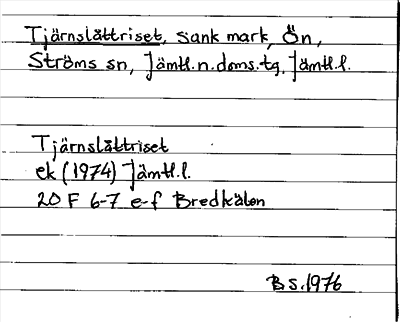 Tjärnslåttriset, sank mark, Ön,
Ströms sn, Jämtl.n.doms.tg, Jämtl.l.
Tjärnslåttriset
ek (1974) Jämtl.l.
20 F 6-7 e-f Bredkälen
BS.1976